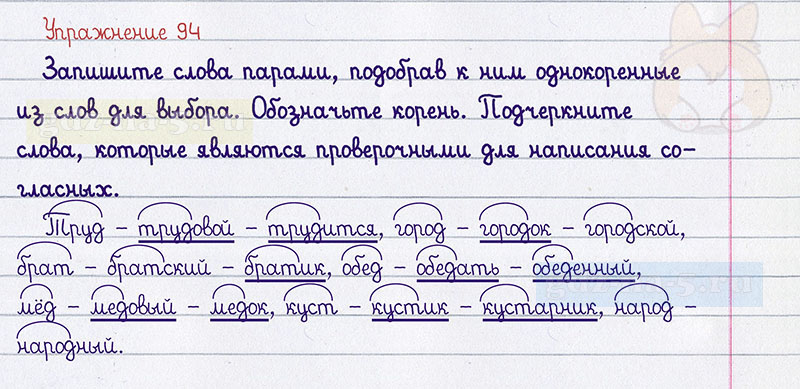 Упражнение 94
Запишите слова парами, подобрав к ним однокоренные
из слов для выбора. Обозначьте корень. Подчеркните
слова, которые являются проверочными для написания со-
гласных.
Труд – трудовой – трудится, город – городок – городской,
брат – братский – братик, обед – обедать – обеденный,
мёд – медовый – медок, куст – кустик – кустарник, народ –
народный.